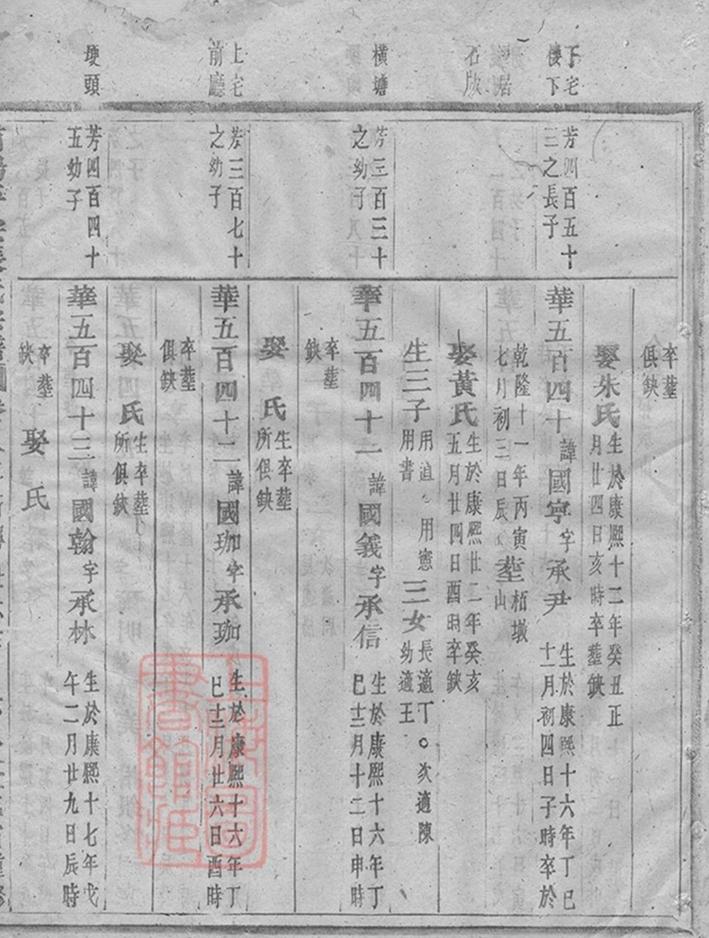 卒塟俱缺
娶朱氏生於康熙十二年癸丑正月廿四日亥時卒塟缺
下宅樓下
芳四百五十三之長子
華五百四十諱國宇字承尹生於康熙十六年丁巳十一月初四日子時卒於
乾隆十一年丙寅七月初三日辰塟栢墈山
石
娶黃氏生於康熙廿二年癸亥五月廿四日酉時卒缺
生三子用道用憲用書三女長適丁次適陳幼適王
橫塘
芳三百三十之幼子
華五百四十一諱國義字承信生於康熙十六年丁巳十二月十二日申時
卒塟缺
娶氏生卒塟所俱缺
上宅前廳
芳三百七十之幼子
華五百四十二諱國珈字承珈生於康熙十六年丁巳十二月廿六日酉時
卒塟俱缺
娶氏生卒塟所俱缺
塘頭
芳四百四十五幼子
華五百四十三諱國翰字承林生於康熙十七年戊午二月廿九日辰時
卒塟缺
娶氏